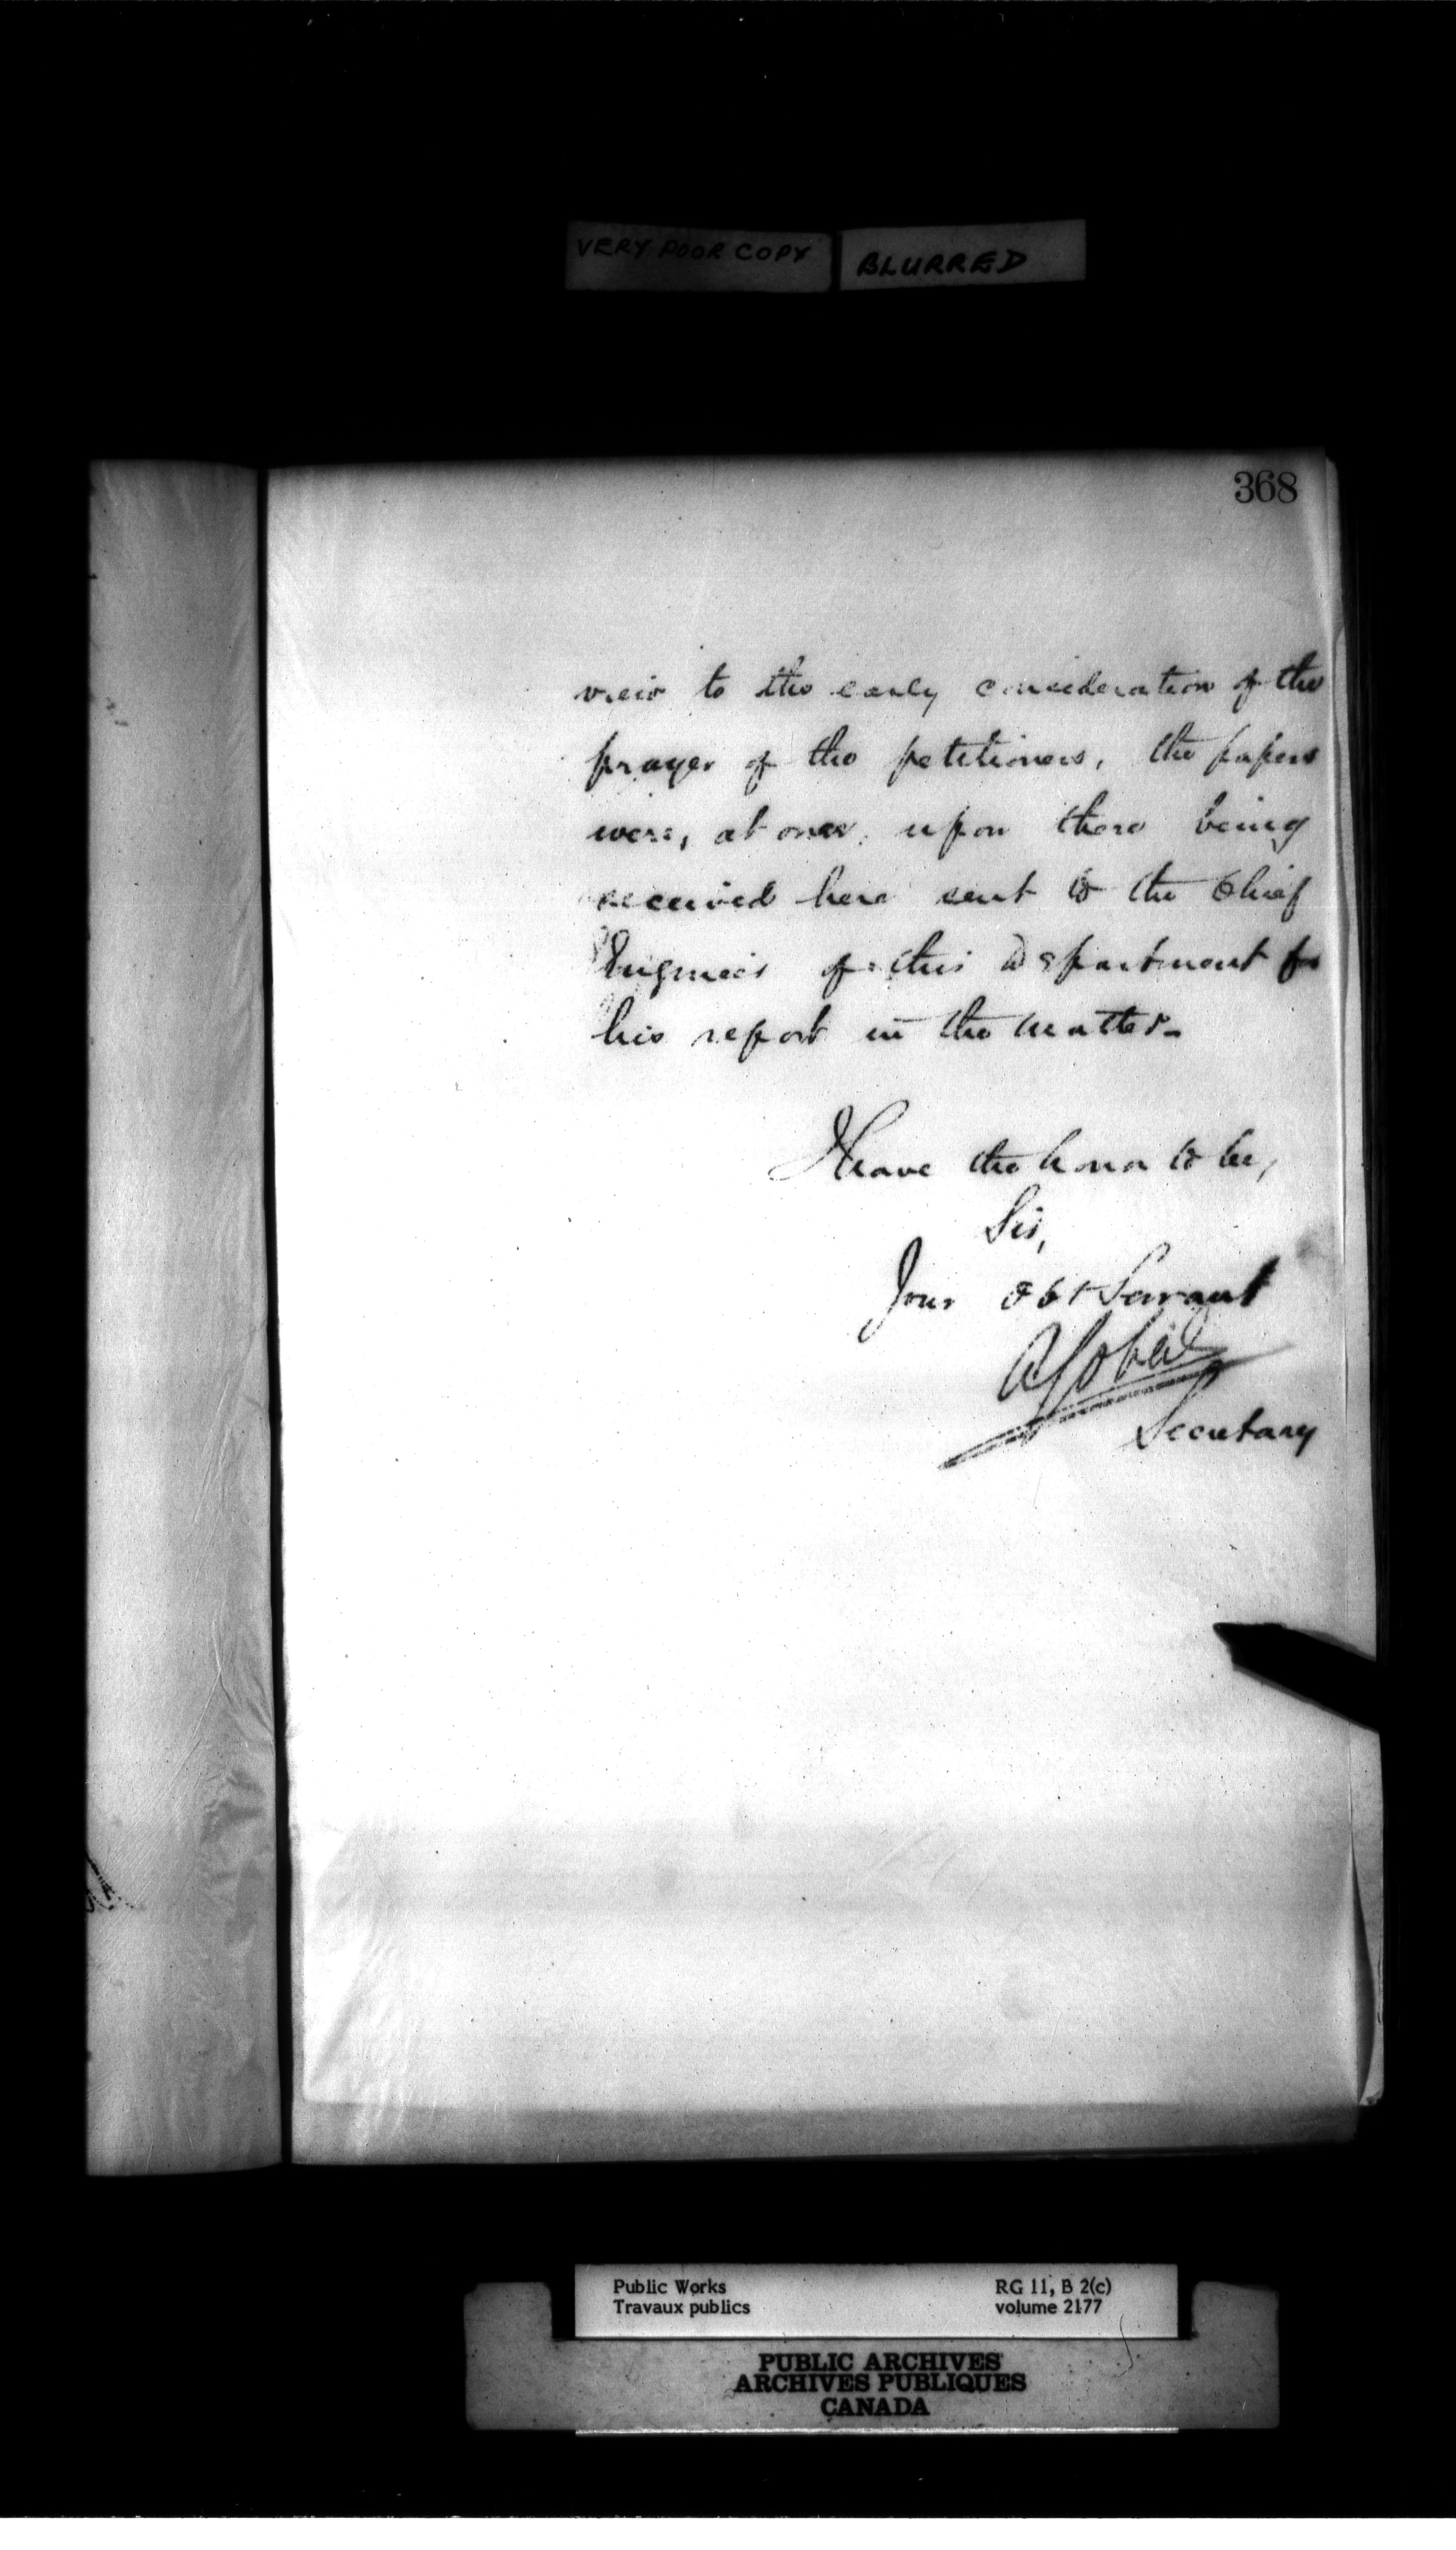 VERY POOR COPY BLURRED
368
view to the early consideration of the
prayer of the petitioners, the papers
were, at once, upon there being
received here sent to the Chief
Engineer of this Department for
his report in the matter.
I have the honor to be,
Sir,
Your Obt Servant
A Gobeil
Secretary
Public Works RG 11, B 2(c)
Travaux publics volume 2177
PUBLIC ARCHIVES
ARCHIVES PUBLIQUES
CANADA